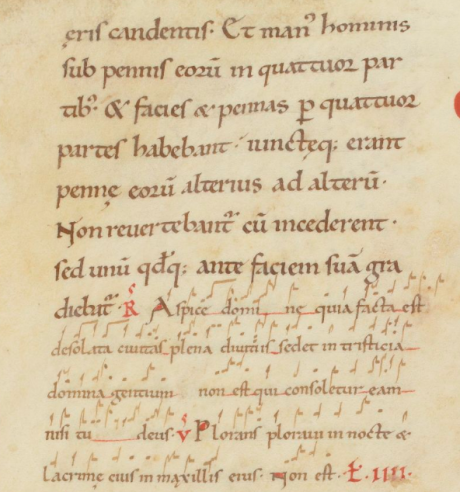 ęris candentis. Et man᷒ hominis
sub pennis eorū in quattuor par
tib᷒. & facies & pennas ꝑ quattuor
partes habebant. iunctęq; erant
pennę eorū alterius ad alterū.
Non revertebant᷑ cū incederent.
sed unū qđq; ante faciem suā gra
diebat᷑. R Aspice domi ne quia facta est
desolata civitas plena divitiis sedet in tristicia
domina gentium non est qui consoletur eam
nisi tu deus. V Plorans ploravit in nocte &
lacrimę eius in maxillis eius. Non est. Ł. IIII.